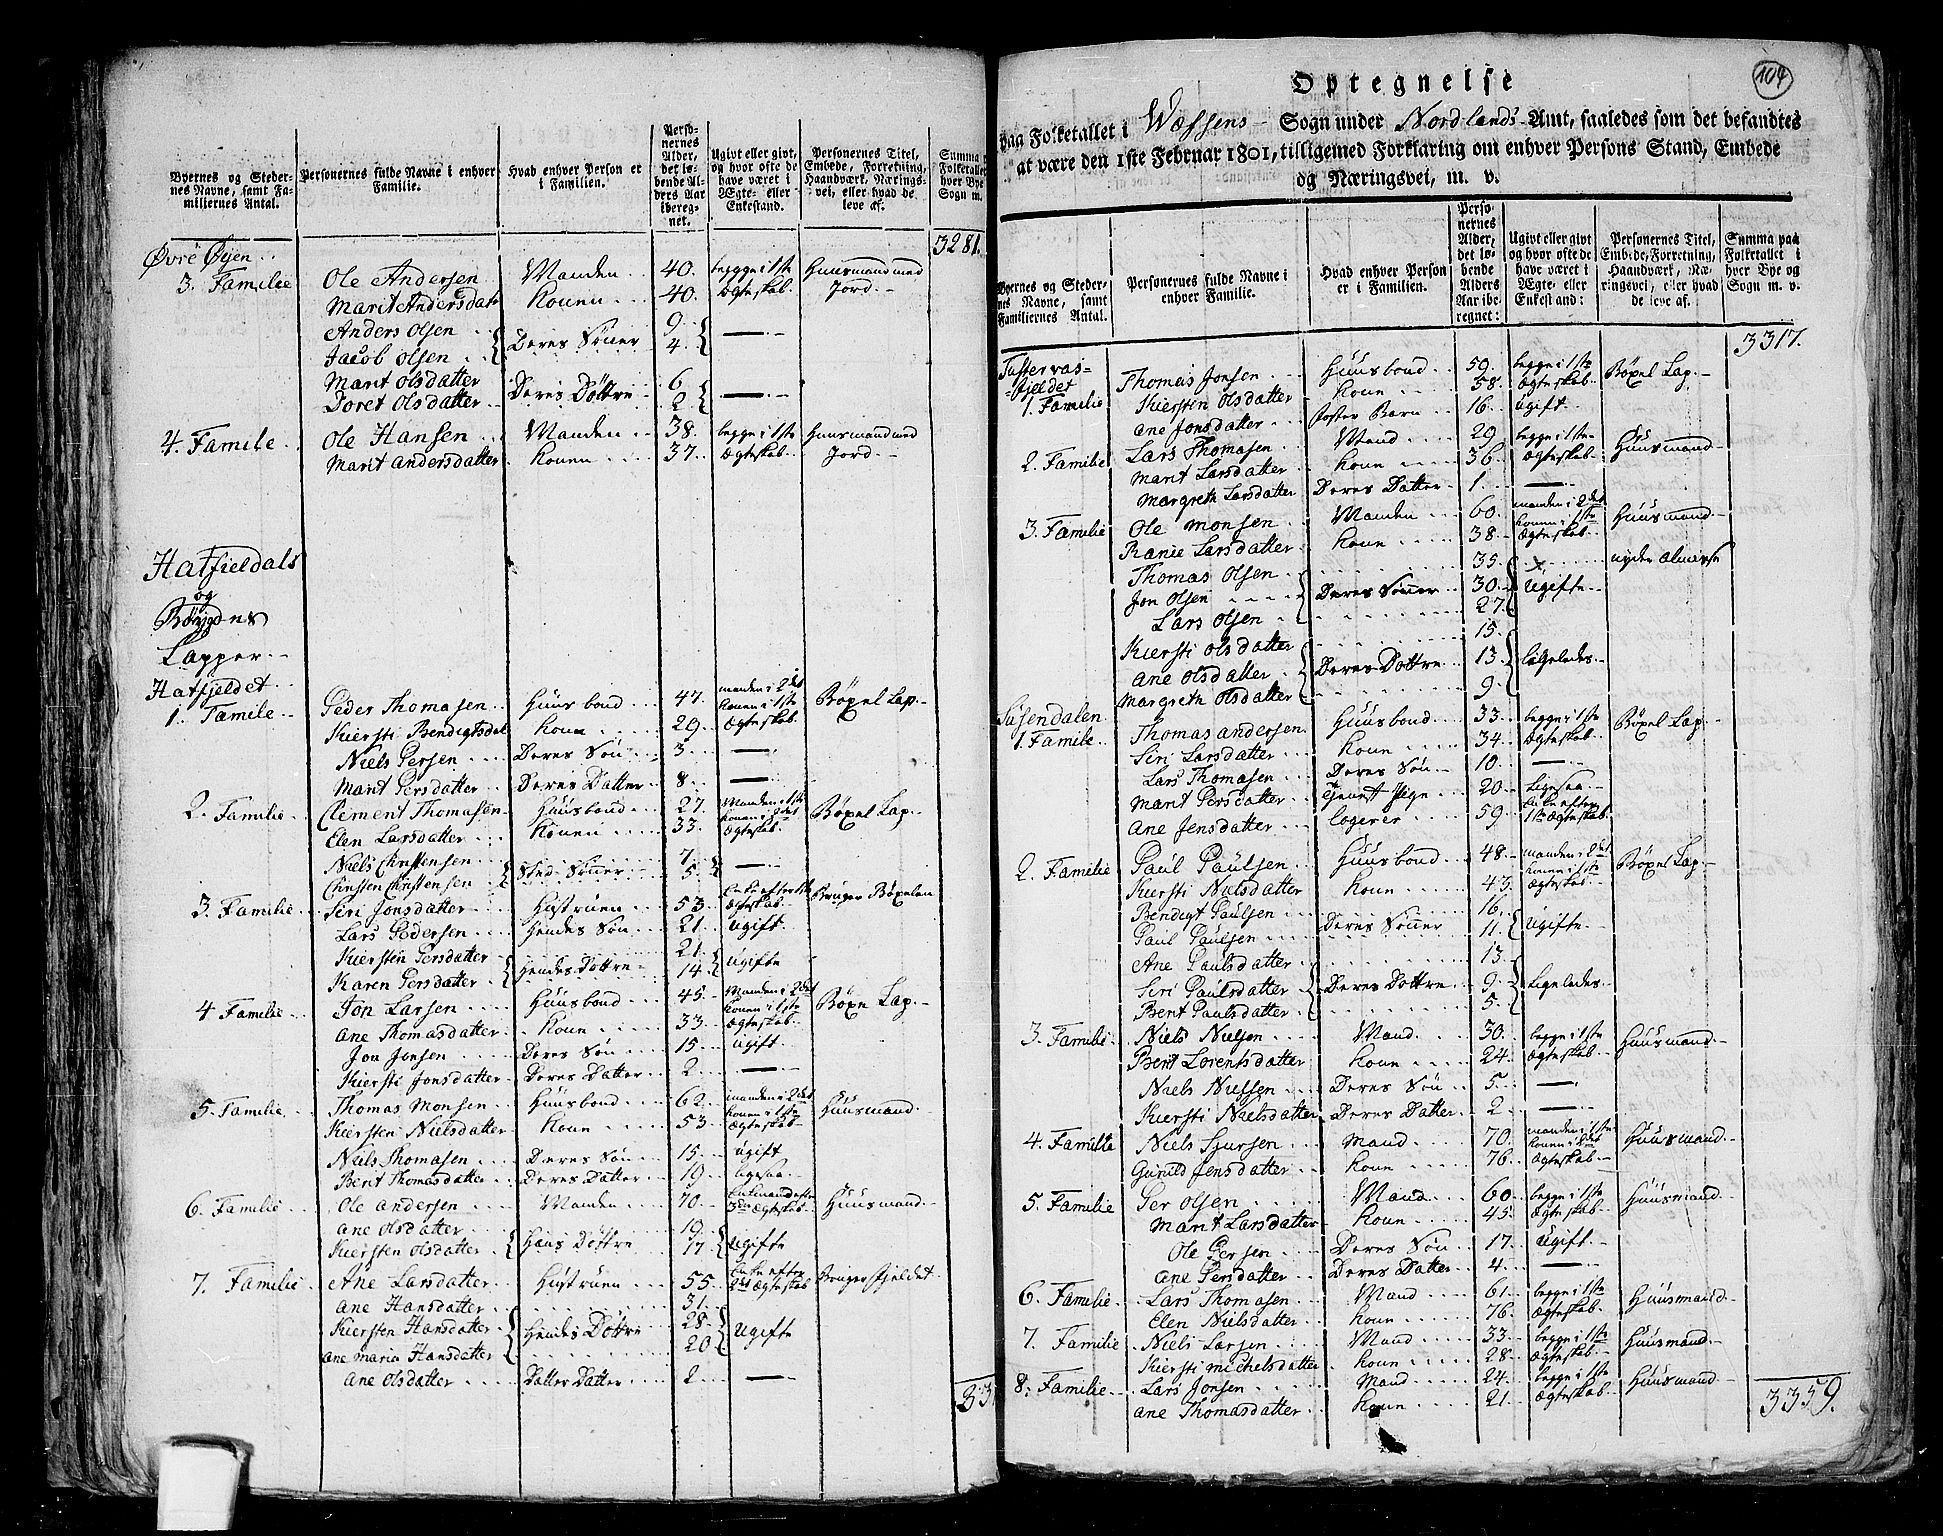 Byernes og Stedernes Navne, samt Familiernes Antal.
Personernes fulde Navne i enhver Familie.
Hvad enhver Person er i Familien.
Personernes Alder, det løbende Alders Aar iberegnet.
Ugivt eller givt, og hvor ofte de have været i Ægte- eller Enkestand.
Personernes Titel, Embede, Forretning, Haandværk, Næringsvei, eller hvad de leve af.
Summa Folketallet hver Bye Sogn m.
3281.
Øvre Øyen
3. Familie Ole Andersen Manden 40. begge i 1ste Ægteskab Huusmand med Jord
Marit Andersdatt Konen 40.
Anders Olsen Deres Sönner 9
Jacob Olsen 4.
Marit Olsdatter Deres Döttre 6
Doret Olsdatter 2
4. Famile Ole Hansen Manden 38. begge i 1ste Ægteskab Huusmand med Jord
Marit Andersdatter Konen 37.
Hatfieldals
og
Bøygdens
Lapper
Hatfjeldet
1. Famile Peder Thomasen Huusbond 47. manden i 2det konen i 1ste Ægteskab Böxel Lap
Kiersti Bendigtsdat Kone 29
Niels Persen Deres Sön 3
Marit Persdatter Deres Datter 8
2. Familie Clement Thomasen Huusbond 27. Manden i 1ste Konen i 2det Ægteskab Böxel Lap
Elen Larsdatter Konen 33.
Niels Christensen Sted-Sönner 7
Christen Christensen 5
3. Familie Siri Jonsdatter Hustruen 53 Enke efter 1ste Ægteskab Bruger Böxelen
Lars Pedersen Hendes Sön 21 ugift
Kiersten Persdatter Hendes Döttre 21 ugifte
Karen Persdatter 14
4 Familie Jon Larsen Huusbond 45. Manden i 2det Konen i 1ste Ægteskab Böxe Lap
Ane Thomasdatter Kone 33
Jon Jonsen Deres Sön 15 ugift
Kiersti Jonsdatter Deres Datter 2
5. Familie Thomas Monsen Huusbond 62. manden i 2det Konen i 1ste Ægteskab Huusmand
Kiersten Nielsdatter Kone 53
Niels Thomasen Deres Sön 15. ugift
Berit Thomasdatter Deres Datter 19. ligesaa
6. Familie Ole Andersen Manden 70. Enkemand efter 3die Ægteskab Huusmand
Ane Olsdatter Hans Döttre 19. ugifte
Kiersten Olsdatter 17
7. Familie Ane Larsdatter Hustruen 55 Enke efter 2det Ægteskab Bruger Fjeldet
Ane Hansdatter 31.
Kiersten Hansdatter Hendes Döttre 28 ugifte
Ane Maria Hansdatter 20
Ane Olsdatter Datter Datter 2
33
104
Optegnelse
paa Folketallet i Wæssens Sogn under Nordlands Amt, saaledes som det befandtes
at være den 1ste Februar 1801, tilligemed Forklaring om enhver Persons Stand, Embede
og Næringsvei, m. v.
Byernes og Stedernes Navne, samt Familiernes Antal.
Personernes fulde Navne i enhver Familie.
Hvad enhver Person er i Familien.
Personernes Alder, det løbende Alders Aar iberegnet:
Ugivt eller givt og hvor ofte de have været i Ægte- eller Enkestand:
Personernes Titel, Embede, Forretning, Haandværk, Næringsvei, eller hvad de leve af.
Summa paa Folketallet i hver Bye og Sogn m. v.
3317.
Tustervas-
fjeldet
1. Familie Thomas Jonsen Huusbond 59. begge i 1ste Ægteskab Böxel Lap
Kiersten Olsdatter Kone 58.
Ane Jonsdatter Foster Barn 16 ugift
2. Familie Lars Thomasen Mand 29 begge i 1ste Ægteskab Huusmand
Marit Larsdatter Kone 36
Margreth Larsdatter Deres Datter 1.
3. Familie Ole Monsen Manden 60. manden i 2det konen i 1ste Ægteskab Huusmand
Ranie Larsdatter Kone 38
Thomas Olsen 35. nyder Almisse
Jon Olsen Deres Sönner 30 ugifte
Lars Olsen 27.
Kiersti Olsdatter 15.
Ane Olsdatter Deres Döttre 13 ligeledes
Margreth Olsdatter 9
Susendalen
1. Familie Thomas Andersen Huusbond 33. begge i 1ste Ægteskab Böxel Lap
Siri Larsdatter Kone 34.
Lars Thomasen Deres Sön 10
Marit Persdatter Tjenest Pige 20 Ligesaa
Ane Jensdatter logerer 59 Enke efter 1ste Ægteskab
2. Familie Paul Paulsen Huusbond 48. manden i 2det konen i 1ste Ægteskab Böxel Lap
Kiersti Nielsdatter Kone 43.
Bendigt Paulsen Deres Sönner 16. ugifte
Paul Paulsen 11.
Ane Paulsdatter 13
Siri Paulsdatter Deres Döttre 9 Ligeledes
Berit Paulsdatter 5.
3. Familie Niels Nielsen Mand 30. begge i 1ste Ægteskab Huusmand
Berit Lorentsdatter Kone 24
Niels Nielsen Deres Sön 5.
Kiersti Nielsdatter Deres Datter 2
4. Familie Niels Sjursen Mand 70. manden i 1ste konen i 2det Ægteskab Huusmand
Gunild Jensdatter Kone 76.
5. Familie Per Olsen Mand 60 begge i 1ste Ægteskab Huusmand
Marit Larsdatter Kone 45.
Ole Persen Deres Sön 17. ugift
Ane Persdatter Deres Datter 4.
6. Familie Lars Thomasen Mand 61. begge i 1ste Ægteskab Huusmand
Elen Nielsdatter Kone 76.
7. Familie Niels Larsen Mand 33. begge i 1ste Ægteskab Huusmand
Kiersti Michelsdatter Kone 28
8. Familie Lars Jonsen Mand 24. begge i 1ste Ægteskab Huusmand
Ane Thomasdatter Kone 21.
3359.